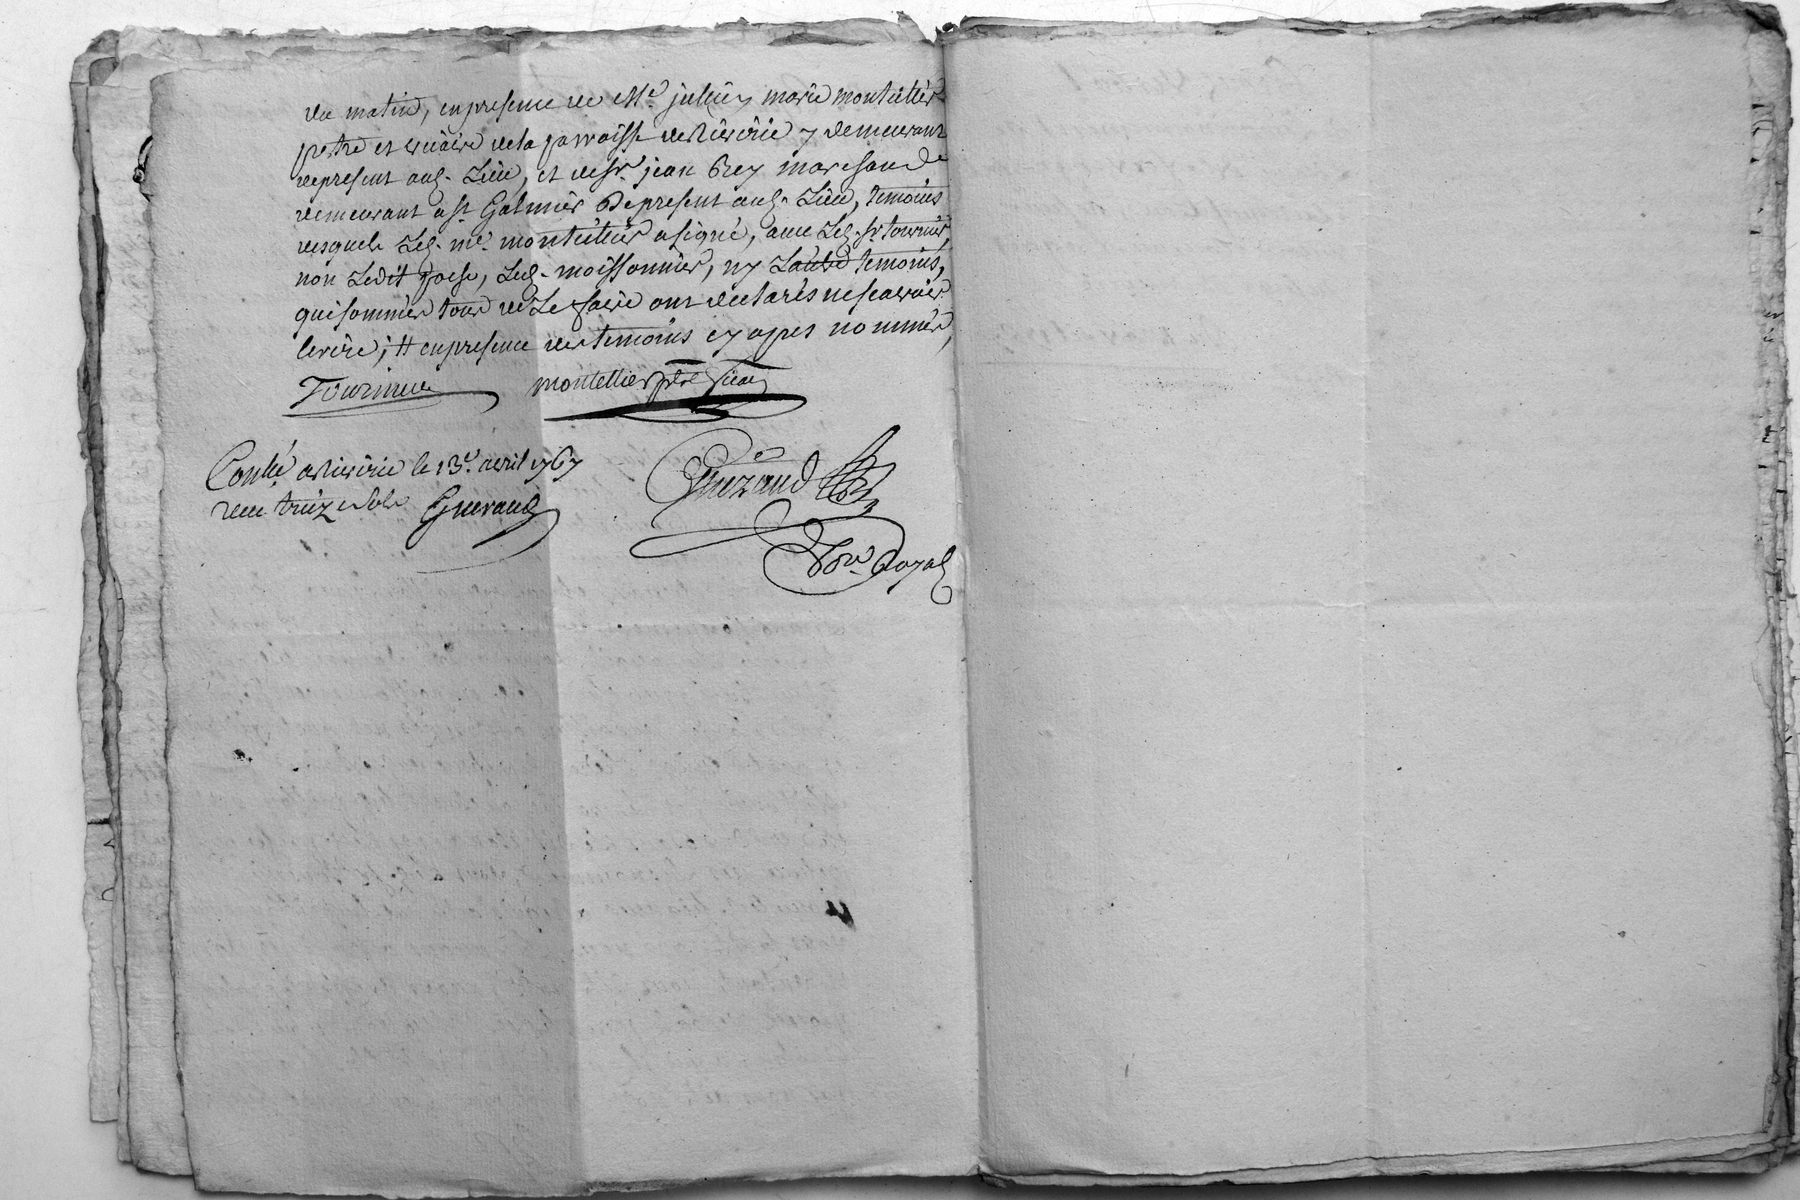 du matin, en presence de Me. julien marie montellier
ptre et vicaire de la parroisse de Riverie y demeurant
de present aud. Lieu, et de sr. jean Grey marchand
demeurant a st Galmier De present aud. Lieu, temoins
desquels Led. me. montellier a signé, avec Led. sr tournier
non Ledit Led. moissonnier, ny Lautre temoins,
qui sommés tous de Le faire ont declarés ne scavoir
écrire, # en presence des temoins cy apres nommés,
Tournier montellier ptre vicaire
Conllé a Riverie le 13e. avril 1767
recu treize sols Gueraud
Guizaud
nore. Royal